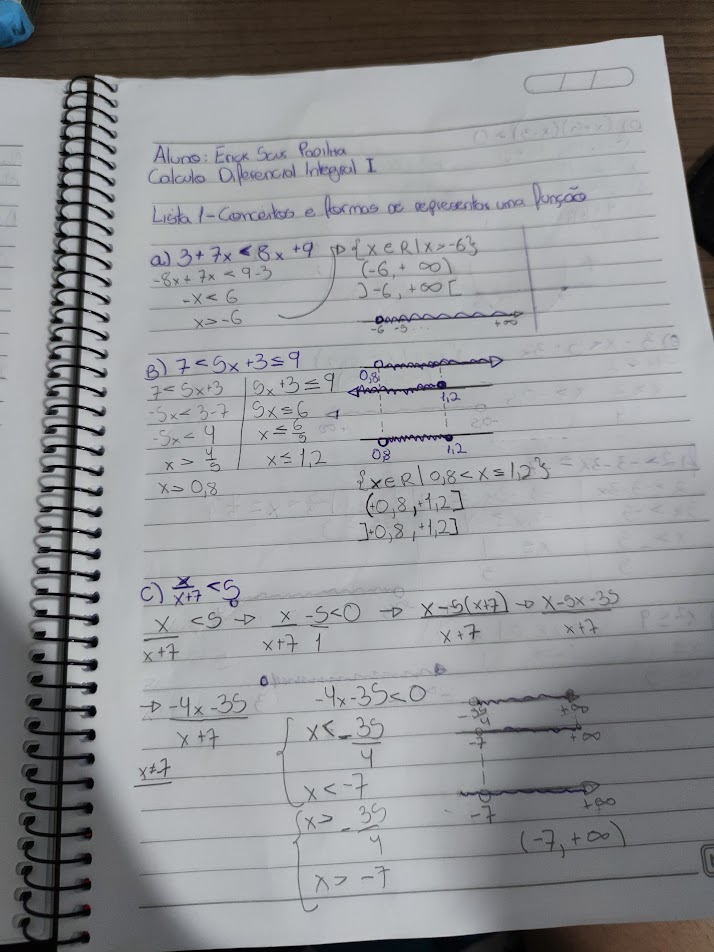 Aluno: Erick Padilha
Calculo Diferencial Integral I
Lista 1 - Conceitos e formas de representar uma função
a) 3 + 7x < 8x + 9 → {x ∈ R / x > -6}
-8x + 7x < 9 - 3 (-6, +∞)
-x < 6 ]-6, +∞[
x > -6
-6 -5 ... +∞
B) 7 < 5x + 3 ≤ 9
7 < 5x + 3 | 5x + 3 ≤ 9 0,8
-5x < 3 - 7 5x ≤ 6 1,2
-5x < 4 x ≤ 6/5
x > 4/5 x ≤ 1,2 0,8 1,2
x > 0,8 {x ∈ R / 0,8 < x ≤ 1,2}
(+0,8, +1,2]
]+0,8, +1,2]
C) x/x+7 < 5
x/x+7 < 5 → x/x+7 - 5/1 < 0 → x-5(x+7)/x+7 → x-5x-35/x+7
→ -4x-35/x+7 -4x-35 < 0
x < -35/4 -35/4 +∞
-7 +∞
x ≠ 7
x < -7
x > -35/4 -7 +∞
(-7, +∞)
x > -7